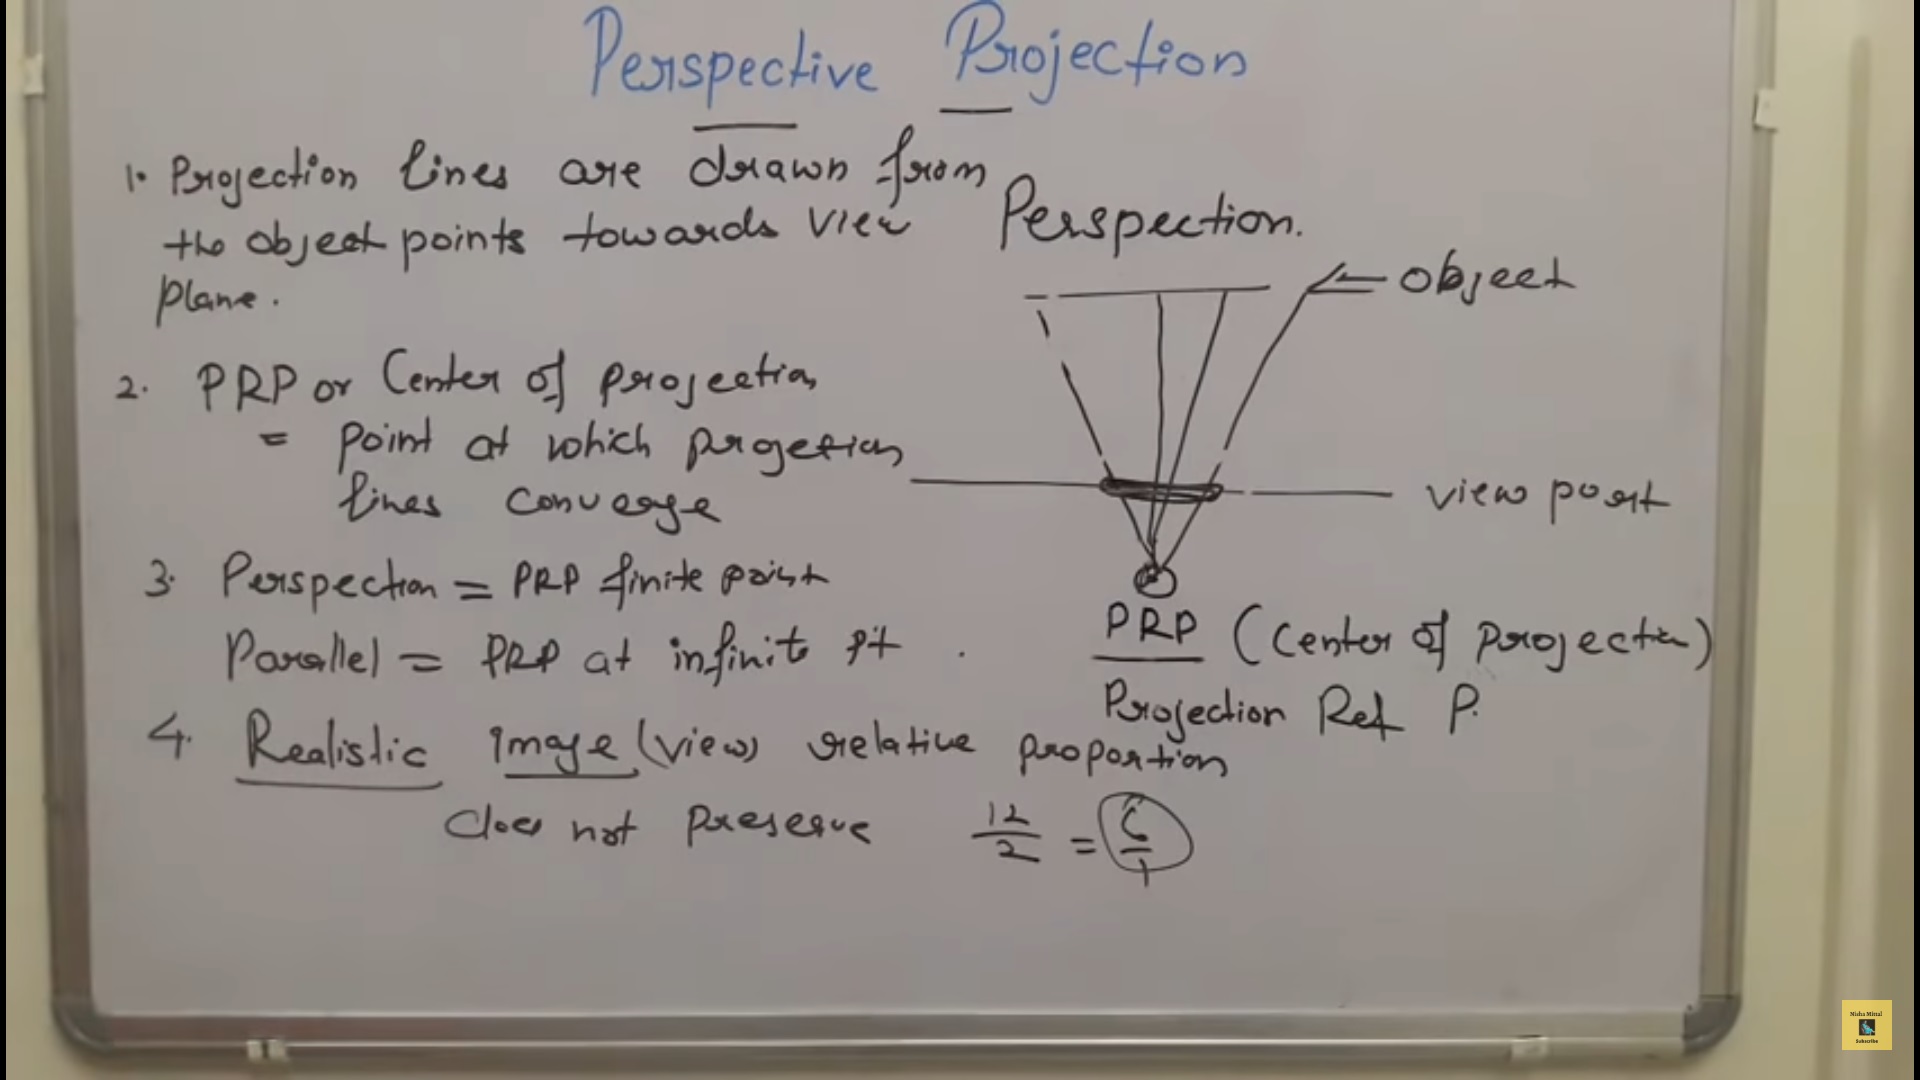 Perspective Projection
1. Projection lines are drawn from
the object points towards view
plane.
2. PRP or Center of projection
= point at which projection
lines converge
3. Perspection = PRP finite point
Parallel = PRP at infinite pt.
4. Realistic image (view) relative proportion
does not preserve 12/2 = 6/1
Perspection.
object
view port
PRP (Center of projection)
Projection Ref P.
Nisha Mittal
Subscribe